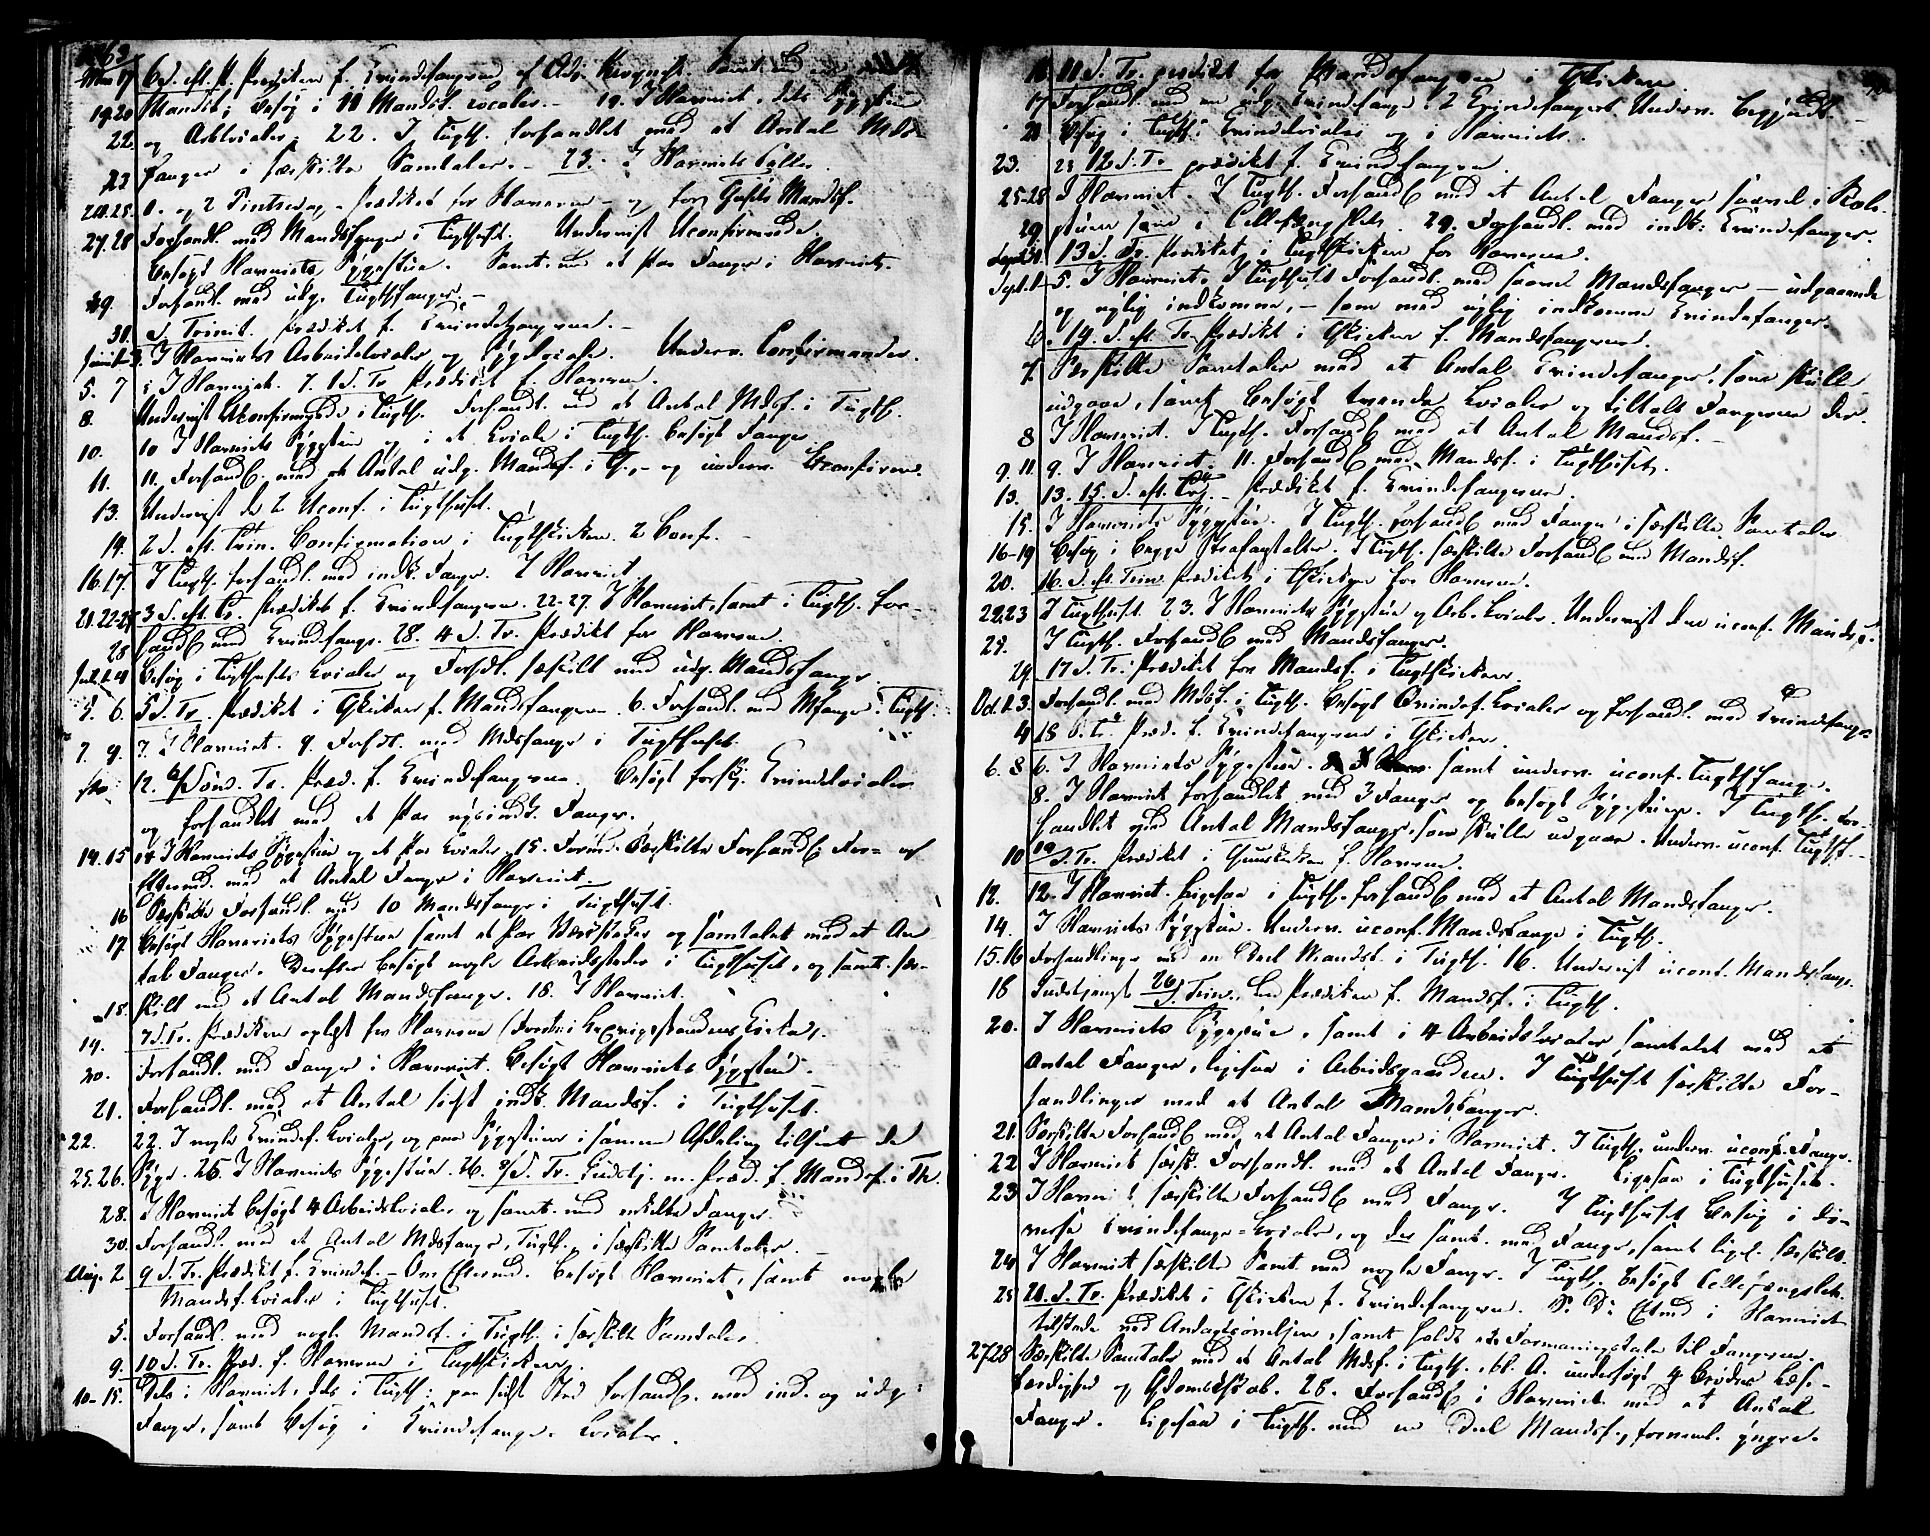 1863
Mai 17 6 S. eft. P. Prædiken f. Qvindefangerne af Adj.
19.20 Mandsf. Besøg i Mandsf. Localer. – 19. I Slaveriet, dets Sygestue
22 og Arblocaler. 22. I Tugth. Forhandlet med et Antal Mds
23 Fanger i særskilte Samtaler. – 23. I Slaveriets Celler.
24.25. 1. og 2 Pintsedag – Prædiket for Slaverne – og for Mandsf.
27.28 Forhandl. med Mandsfanger i Tugthuset. Undervist Uconfirmerede.
Besøgt Slaveriets Sygestue. Samt. med et Par Fanger i Slaveriet.
29. Forhandl. med udg. Tugthfanger. –
31. S. Trinit. Prædiket f. Qvindefangerne. –
Juni 3. I Slaveriets Arbeidslocaler og Syglocaler. Underv. Confirmander.
5. 7 I Slaveriet. 7. 1 S. Tr. Prædiket f. Slaverne.
8. Undervist Ukonfirmerede i Tugth. Forhandl. med et Antal Mdsf. i Tugth.
10. 10 I Slaveriets Sygestue og i et Locale i Tugth. besøgt Fanger.
11. 11. Forhandl. med et Antal udg. Mandsf. i T. – og underv. Ukonfirm.
13. Undervist de 2 Uconf. i Tugthuset.
14. 2 S. eft. Trin. Confirmation i Tugthkirken. 2 Conf. –
16.17. I Tugth. Forhandl. med indk. Fanger. I Slaveriet.
21.22-27 3 S. eft. Tr. Prædiket f. Qvindefangerne. 22-27. I Slaveriet, samt i Tugth. For-
28 handl. med Qvindefange. 28. 4 S. Tr. Prædiket for Slaverne.
Juli 1-4 Besøg i Tugthusets Localer og Forhdl. særskilt med udg. Mandsfanger.
5. 6. 5 S. Tr. Prædiket i Tkirken f. Mandsfangerne. 6. Forhandl. med Mfanger i Tugth.
7. 9. 7. I Slaveriet. 9. Forhdl. med Mdsfange i Tugthuset.
12. 6/Sønd. Tr. Præd. f. Qvindefangerne. Besøgt forskj. Qvindelocaler
og forhandlet med et Par nysindk. Fanger.
14.15 14 I Slaveriets Sygestue og et Par Localer. 15. Form. Særskilte Forhandl. For- og
Eftermd. med et Antal Fanger i Slaveriet.
16 Særskilte Forhandl. med 10 Mandsfange i Tugthuset.
17. Besøgt Slaveriets Sygestue samt et Par Værksteder og samtalet med et An
tal Fanger. Derefter besøgt nogle Arbeidssteder i Tugthuset, og samt. sær-
18. skilt med et Antal Mandsfanger. 18. I Slaveriet.
19. 7 S. Tr. Prædiken oplæst for Slaverne
20. Forhandl. med Fanger i Slaveriet. Besøgt Slaveriets Sygestue.
21. Forhandl. med et Antal sidst indk. Mandsf. i Tugthuset.
22. 22. I nogle Qvindef. Localer, og paa Sygestuen i samme Afdeling tilseet de
25.26. Syge. 25. I Slaveriets Sygestue. 26. 8/S. Tr. Gudstj. m. Præd. f. Mandsf. i Th.
28. I Slaveriet besøgt 4 Arbeidslocaler og samt. med enkelte Fanger.
30. Forhandl. med et Antal Mdsfange, Tugth., i særskilte Samtaler.
Aug. 2 9 S. Tr. Prædiket f. Qvindef. – Om Eftermd. besøgt Slaveriet, samt nogle
Mandsf. Localer i Tugthuset.
5. Forhandl. med nogle Mandsf. i Tugth. i særskilte Samtaler.
9. 10 S. Tr. Præd. f. Slaverne i Tugthkirken.
10-15. Dels i Slaveriet, dels i Tugth: paa sidste Sted Forhandl. med ind- og udg:
Fanger, samt Besøg i Qvindefange- Localer.
16 11 S. Tr. prædiket for Mandsfangerne i Tkirken.
17 Forhandl. med en udg. Qvindefange. 2 Qvindefangers Underv. begyndt. –
20 Besøg i Tugth: Qvindelocaler og i Slaveriet.
23. 23 12 S. Tr. prædiket f. Qvindefangerne.
25-28 I Slaveriet. I Tugth. Forhandl. med et Antal Fanger saavel i
29 som i Cellefængslet. 29. Forhandl. med indk: Qvindefanger.
13 S. Tr. Prædiket i Tugthkirken for Slaverne.
Sept. 1-5. I Slaveriet. I Tugthuset Forhandl. med saavel Mandsfanger – udgaaende
og nylig indkomne, – som med nylig indkomne Qvindefanger.
6. 14. S. eft. Tr. Prædiket i Tkirken f. Mandsfangerne.
7. Særskilte Samtaler med et Antal Qvindefanger, som skulle
udgaae, samt besøgt Localer og tiltalt Fangerne der.
8 I Slaveriet. I Tugth. Forhandl. med et Antal Mandsf. –
9. 11. 9. I Slaveriet. 11. Forhandl. med Mandsf. i Tugthuset.
13. 13. 15. S. eft. Tr. – Prædiket f. Qvindefangerne.
15. I Slaveriets Sygestue. I Tugth. Forhandl. med Fanger i særskilte Samtaler
16-19 Besøg i begge Strafanstalter. I Tugth. særskilte Forhandl. med Mandsf.
20. 16. S. eft. Trin. Prædiket i Tkirken for Slaverne.
22.23 I Tugthuset. 23. I Slaveriets Sygestue og Arb. Localer. Undervist den uconf. Mandsf.
28. I Tugth. Forhandl. med Mandsfanger.
29 17 S. Tr: Prædiket for Mandsf. i Tugthkirken.
Oct. 1-3. Forhandl. med Mdsf. i Tugth. Besøgt Qvindef. Localer og forhandl. med Qvindefanger
4 18 S. Tr. Præd. f. Qvindefangerne i Tkirken.
6. 8 6. I Slaveriets Sygestue. samt underv. uconf. Tugthfange.
8. I Slaveriet forhandlet med 3 Fanger og besøgt Sygestuen. I Tugth. For-
handlet med Antal Mandsfanger, som skulle udgaae. Underv. uconf. Tugthf. –
10 19/S. Tr. Prædiket i Tkirken f. Slaverne.
12. 12. I Slaveriet. Ligesaa i Tugth. Forhandl. med et Antal Mandsfanger.
14. I Slaveriets Sygestue. Underv. uconf. Mandsfange i Tugth.
15.16 Forhandlinger med en Deel Mandsf. i Tugth. 16. Undervist uconf. Mandsfange.
18 Gudstjenest 20/S. Trin. Præediken f. Mandsf. i Tugth.
20. I Slaveriets Sygestue, samt i 4 Arbeidslocaler, samtalet med et
Antal Fanger, ligesaa i Arbeidsgaarden. I Tugthuset særskilte For-
handlinger med et Antal Mandsfanger.
21. Særskilte Forhandl. med et Antal Fanger i Slaveriet. I Tugth. underv. uconf. Fange.
22 I Slaveriet særsk. Forhandl. med et Antal Fanger. Ligesaa i Tugthuset.
23 I Slaveriet særskilte Forhandl. med Fanger. I Tugthuset Besøg i di-
verse Qvindefange-Localer, og der samt. med Fanger, samt ligel. særskilt.
24 I Slaveriet særskilte Samt. med nogle Fanger. I Tugth. besøgt Cellefængslet.
25 21. S. Tr. Prædiket i Tkirken f. Qvindefangerne. S. D. Eftmd i Slaveriet
tilstede ved Andagtsøvelsen, samt holdt en Formaningstale til Fangerne.
27 28 Særskilte Samtaler med et Antal Mdsf. i Tugth., bl. A. undersøgt 4 Læse-
færdighed og Kdomskskab. 28. Forhandl. i Slaveriet med et Antal
Fanger. Ligesaa i Tugth. med en Deel Mandsf., forneml. yngre.